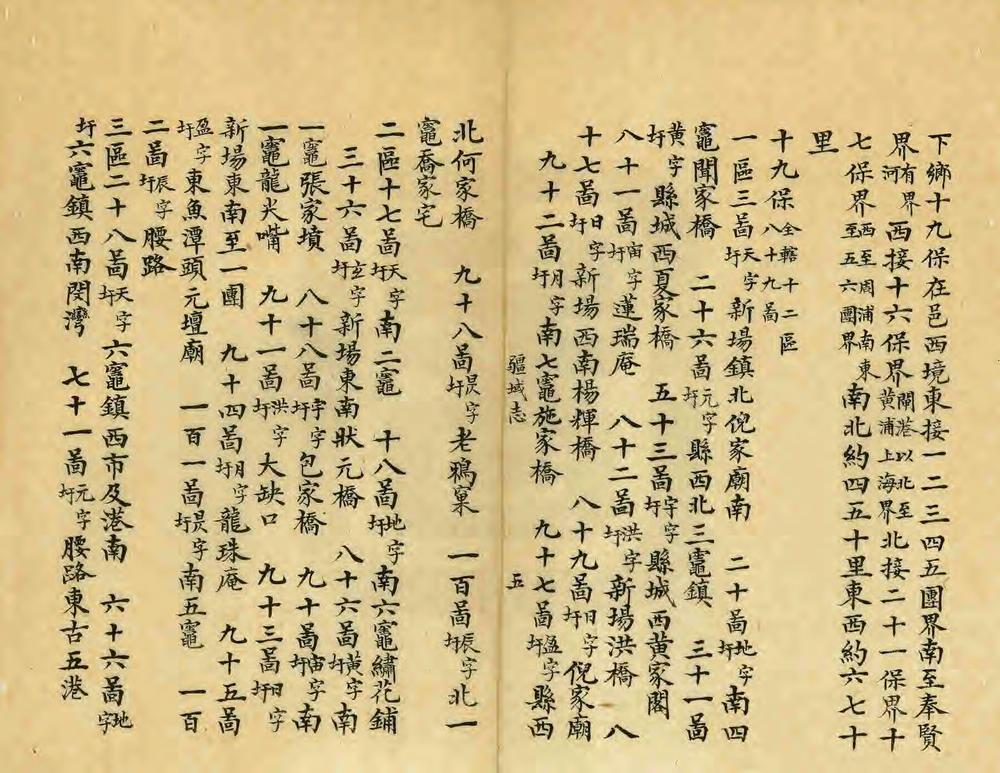 下鄉十九保在邑西境東接一二三四五團界南至奉賢
界有界河西接十六保界閘港以北至黃浦上海界北接二十一保界十
七保界西至周浦南東至五六團界南北約四五十里東西約六七十
里
十九保全轄十二區八十九啚
一區三啚天字圩新場鎮北倪家廟南　二十啚地字圩南四
竈聞家橋　二十六啚元字圩縣西北三竈鎮　三十一啚
黃字圩縣城西夏家橋　五十三啚宇字圩縣城西黃家閣
八十一啚宙字圩蓮瑞庵　八十二啚洪字圩新場洪橋　八
十七啚日字圩新場西南楊輝橋　八十九啚日字圩倪家廟
九十二啚月字圩南七竈施家橋　九十七啚盈字圩縣西
疆域志　五
北何家橋　九十八啚昃字圩老鴉窠　一百啚辰字圩北一
竈喬家宅
二區十七啚天字圩南二竈　十八啚地字圩南六竈繡花鋪
三十六啚玄字圩新場東南狀元橋　八十六啚黃字圩南
一竈張家墳　八十八啚宇字圩包家橋　九十啚宙字圩南
一竈龍尖嘴　九十一啚洪字圩大缺口　九十三啚日字圩
新場東南至一團　九十四啚月字圩龍珠庵　九十五啚
盈字圩東魚潭頭元壇廟　一百一啚昃字圩南五竈　一百
二啚辰字圩腰路
三區二十八啚天字圩六竈鎮西市及港南　六十六啚地字
圩六竈鎮西南閔灣　七十一啚元字圩腰路東古五港